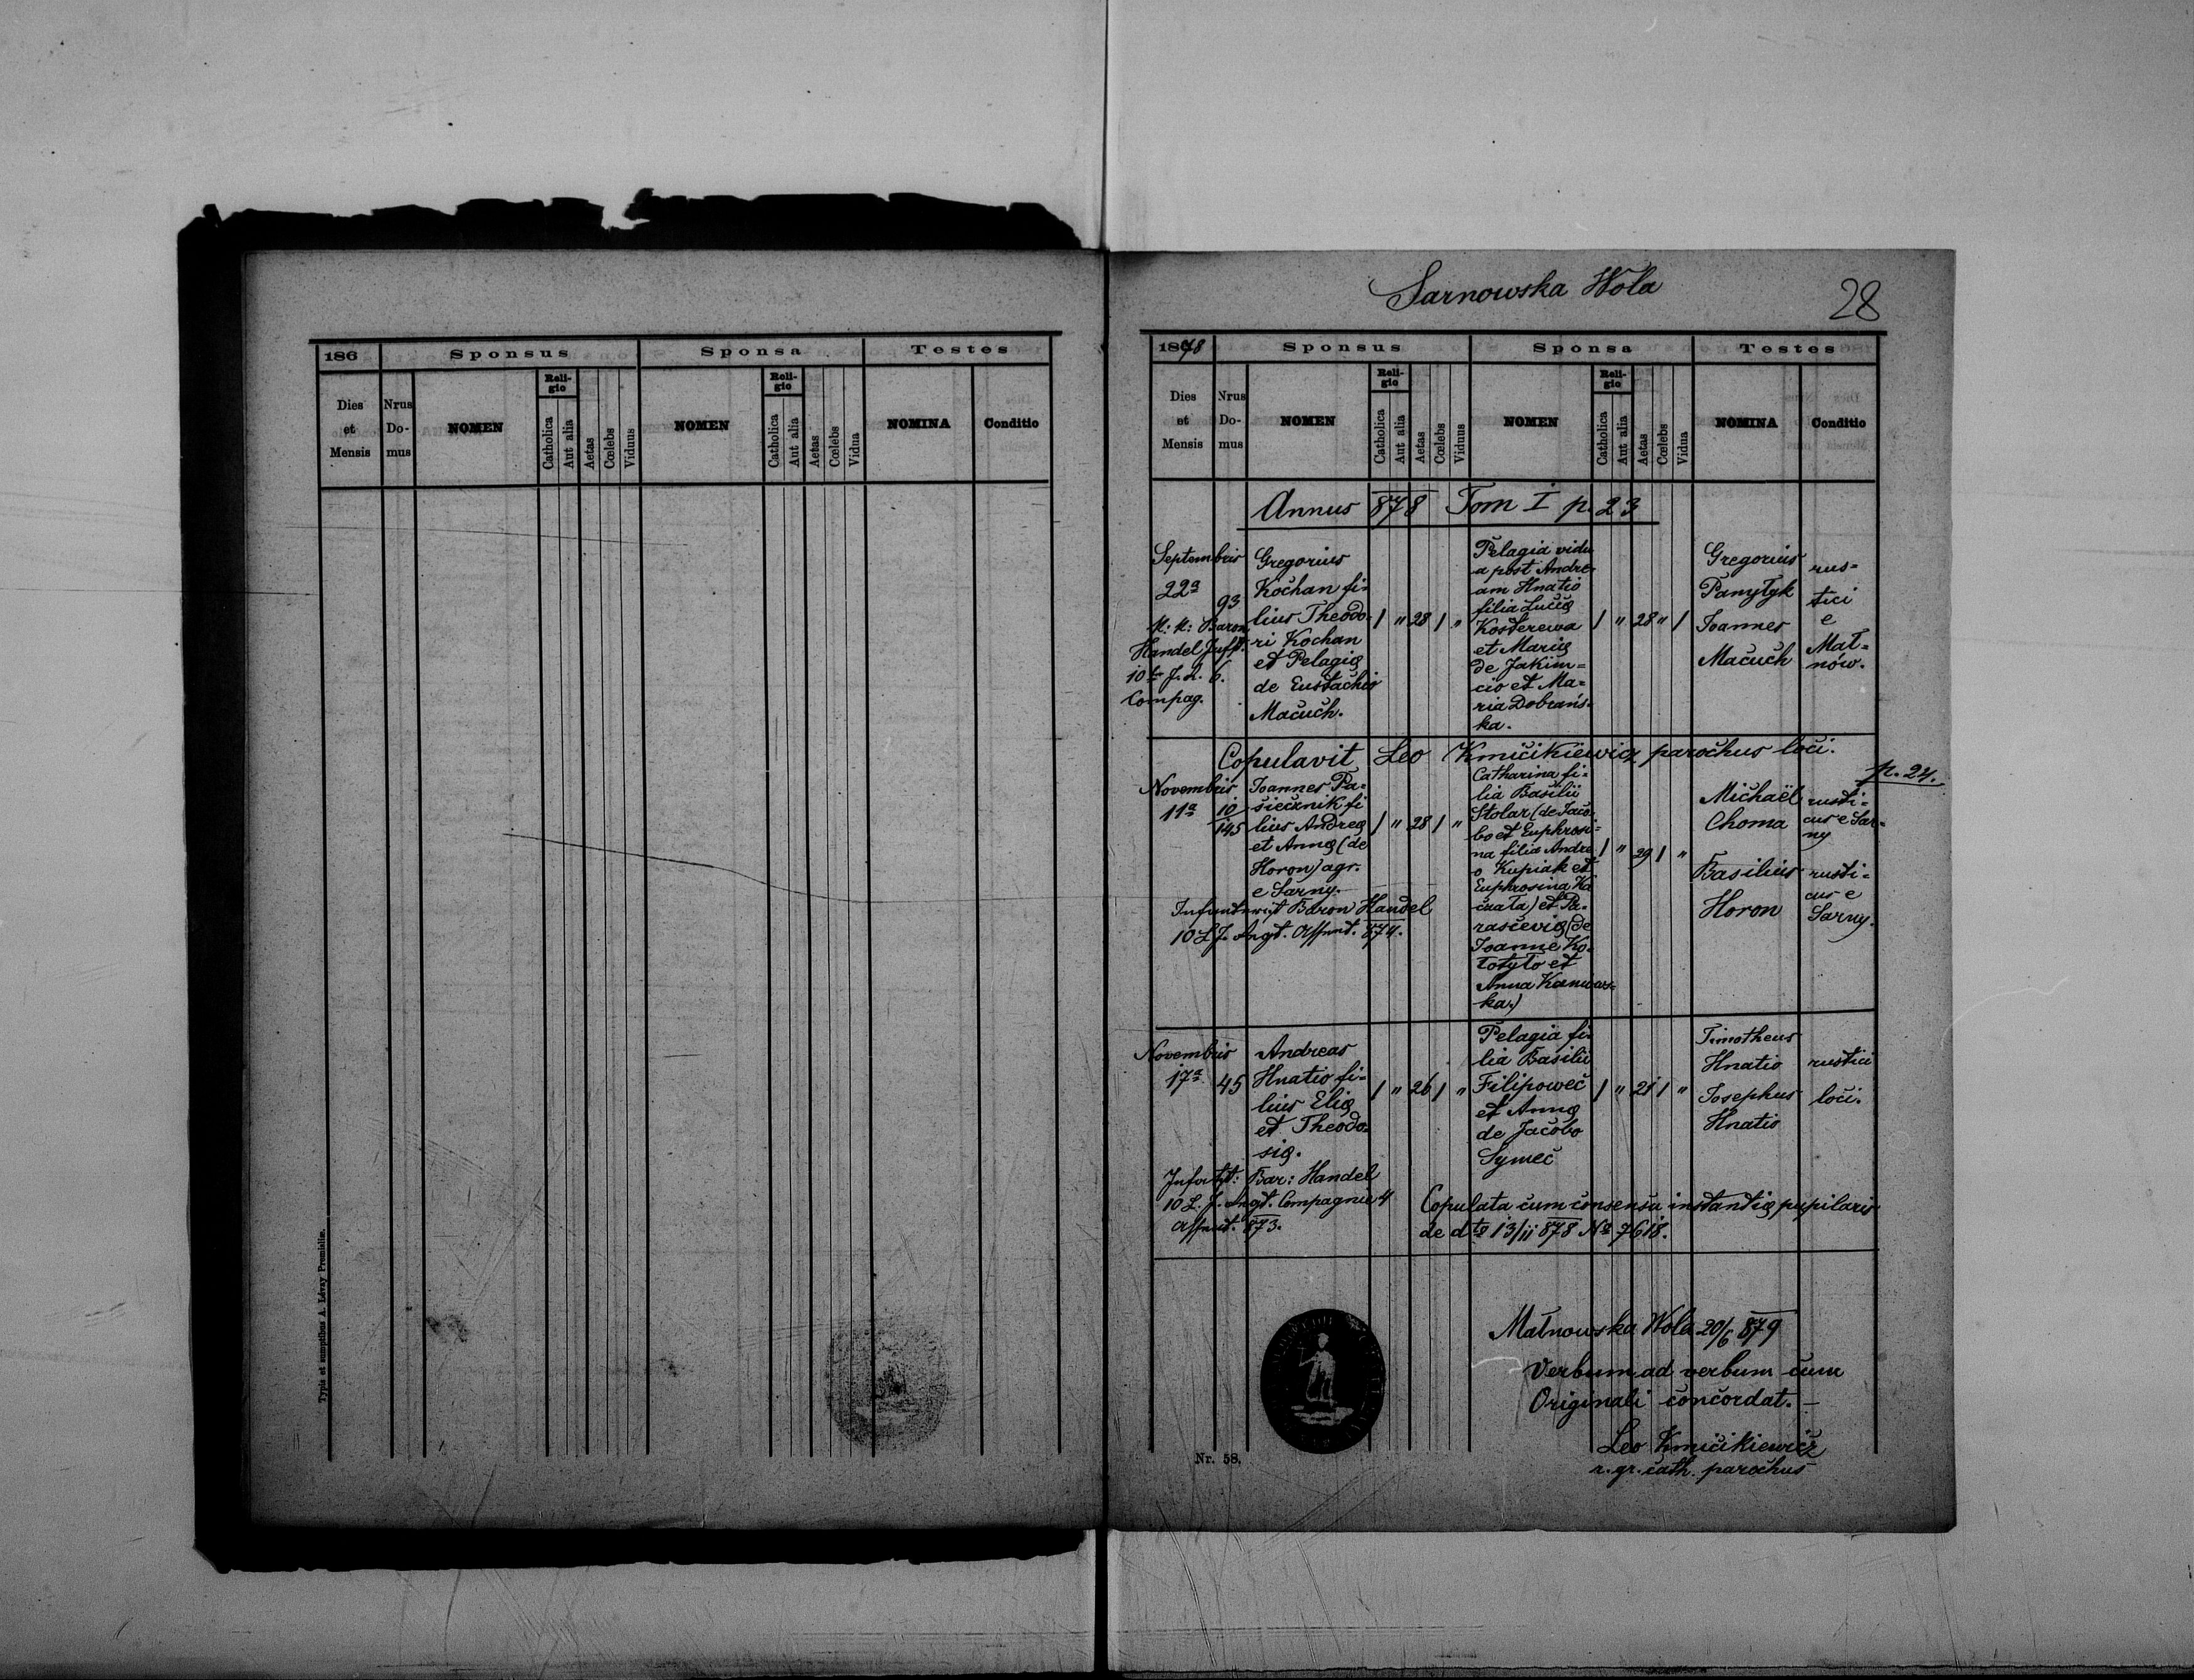 186
Sponsus
Sponsa
Testes
Dies
et
Mensis
Nrus
Do-
mus
NOMEN
Reli-
gio
Catholica
Aut alia
Aetas
Cœlebs
Viduus
NOMEN
Reli-
gio
Catholica
Aut alia
Aetas
Cœlebs
Vidua
NOMINA
Conditio
Typis et sumptibus A. Lévay Premisliæ.
Sarnowska Wola
28
1878
Sponsus
Sponsa
Testes
Dies
et
Mensis
Nrus
Do-
mus
NOMEN
Reli-
gio
Catholica
Aut alia
Aetas
Cœlebs
Viduus
NOMEN
Reli-
gio
Catholica
Aut alia
Aetas
Cœlebs
Vidua
NOMINA
Conditio
Annus 878 Tom I p. 23
Septembris
22a
K: K: Baron
Handel
10te J. R. 6.
Compag.
93
Gregorius
Kochan fi-
lius Theodo-
ri Kochan
et Pelagię
de Eustachio
Macuch.
/ " 28 / "
Pelagia vidu
a post Andre-
am Hnatio
filia Lucę
Kosterewa
et Marię
de Jakim=
cio et Ma=
ria Dobrańs-
ka.
/ " 28 " /
Gregorius
Panytyk
Joannes
Macuch
rus=
tici
e
Mał=
nów.
Copulavit Leo Kmicikiewicz parochus loci.
p. 24.
Novembris
11a
10
145
Joannes Pa-
siecznik fi
lius Andreę
et Annę (de
Horon) agr.
e Sarny.
Baron Handel
10 L. J. Regt. Assent. 874.
/ " 28 / "
Catharina fi=
lia Basilii
Stolar (de Jaco-
bo et Euphrosi=
na filia Andre
o Kupiak et
Euphrosina Ka
czata) et Pa-
rascevię (de
Joanne Ko-
łotyło et
Anna Kaniows-
ka.)
/ " 29 / "
Michaël
Choma
rusti=
cus e Sar=
ny
Basilius
Horon
rusti=
cus e
Sarny.
Novembris
17a
45
Andreas
Hnatio fi=
lius Elię
et Theodo=
się.
Bar: Handel
10 L. J. Regt. Compagnie 4
Assent. 873.
/ " 26 / "
Pelagia fi-
lia Basilii
Filipowec
et Annę
de Jacobo
Symec
/ " 21 / "
Timotheus
Hnatio
Josephus
Hnatio
rustici
loci.
Copulata cum consensu instantię pupilaris
de dto 13/11 878 No 7618.
Małnowska Wola 20/6 879
Verbum ad verbum cum
Originali concordat. –
Leo Kmicikiewicz
r. gr. cath. parochus
Nr. 58.